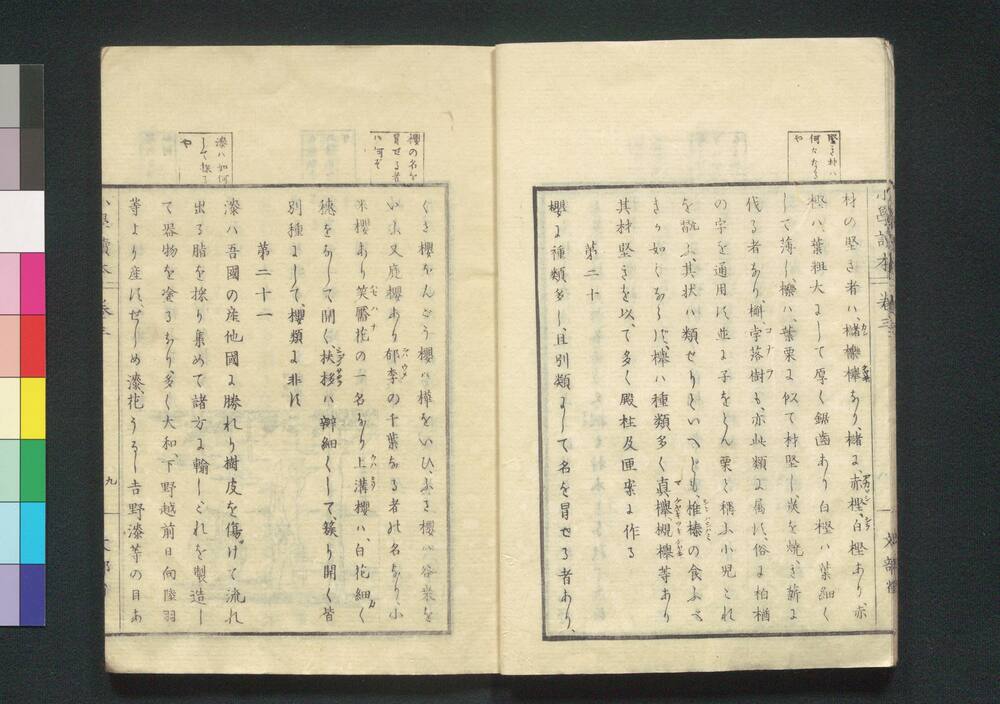 堅き材ハ
何々なる
や
材の堅き者ハ、櫧櫟櫸あり、櫧に、赤樫、白樫あり赤
樫ハ、葉粗大にして厚く鋸歯あり白樫ハ葉細く
して薄し櫟ハ、葉栗に似て材堅し炭を焼き薪に
伐る者なり、槲孛落樹も、亦此類に属す、俗に柏楢
の字を通用す並に子をどん栗と稱ふ小児これ
を翫ぶ、其状ハ類せりといへども、椎榛の食ふべ
きが如くならず、櫸ハ種類多く真櫸槻櫸等あり
其材堅きを以て、多く殿柱及匣案に作る
第二十
櫻に種類多し、且別類にして名を冒せる者あり、
小學讀本
卷三
文部省
櫻の名を
冒せる者
ハ何ぞ
漆ハ如何
して採る
や
いふ又鹿櫻あり郁李の千葉なる者の名なり、小
米櫻あり笑靨花の一名なり上溝櫻ハ、白花細く
穂をなして開く、扶移ハ辨細くして簇り開く皆
別種にして、櫻類に非ず
第二十一
漆ハ吾國の産他國に勝れり樹皮を傷けて流れ
出る脂を採り集めて諸方に輸しこれを製造し
て器物を塗るなり、多く大和、下野越前日向陸羽
等より産す、せしめ漆、花うるし吉野漆等の目あ
九